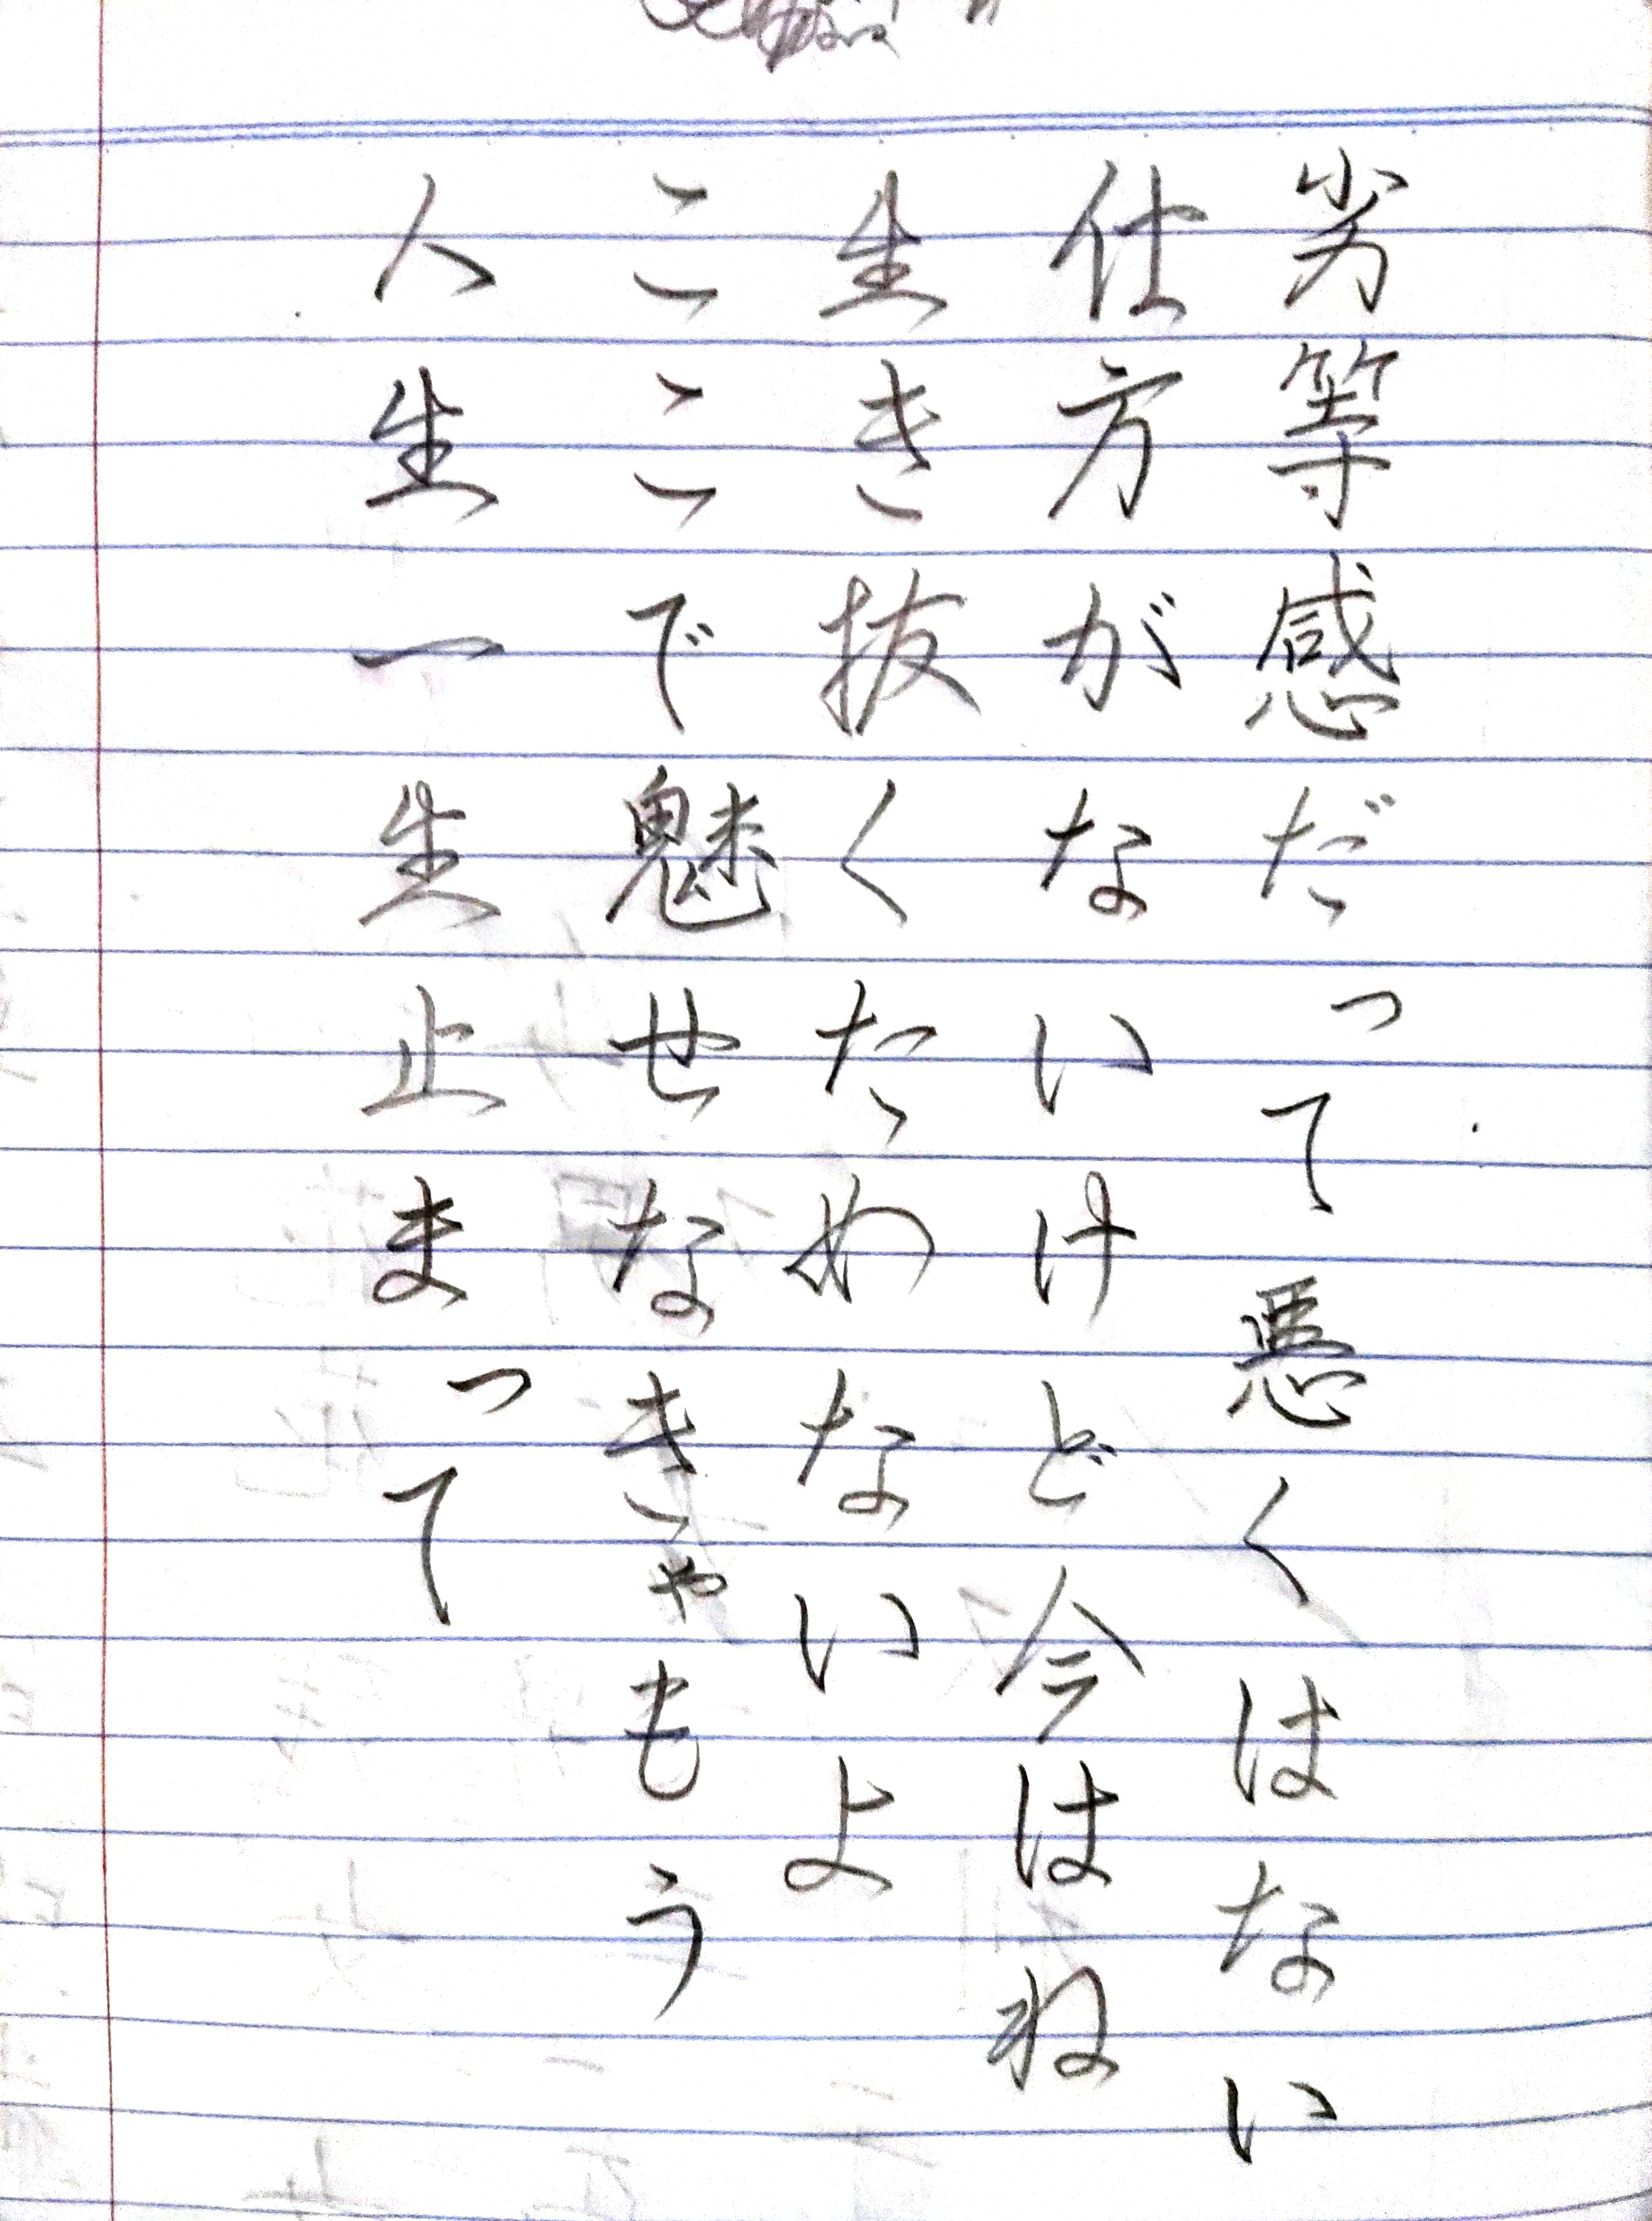 劣等感だって悪くはない
仕方がないけど今はね
生き抜くためないよ
ここで魅せなきゃもう
人生一生止まって